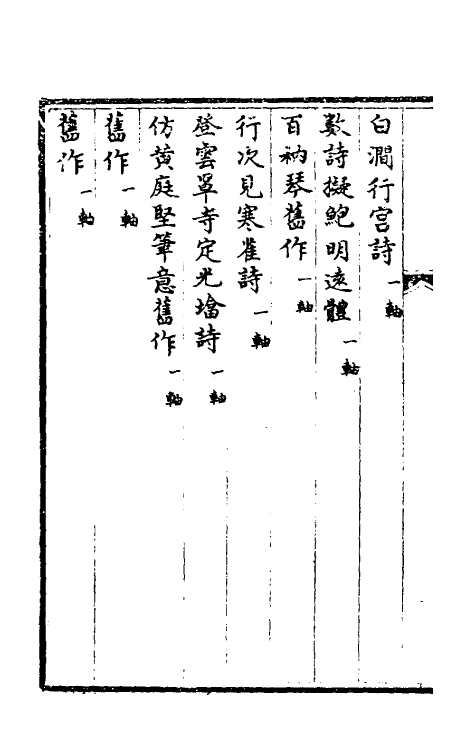 白澗行宮詩一軸
數詩擬鮑明遠體一軸
百衲琴舊作一軸
行次見寒雀詩一軸
登雲罩寺定光墖詩一軸
仿黃庭堅筆意舊作一軸
舊作一軸
舊作一軸